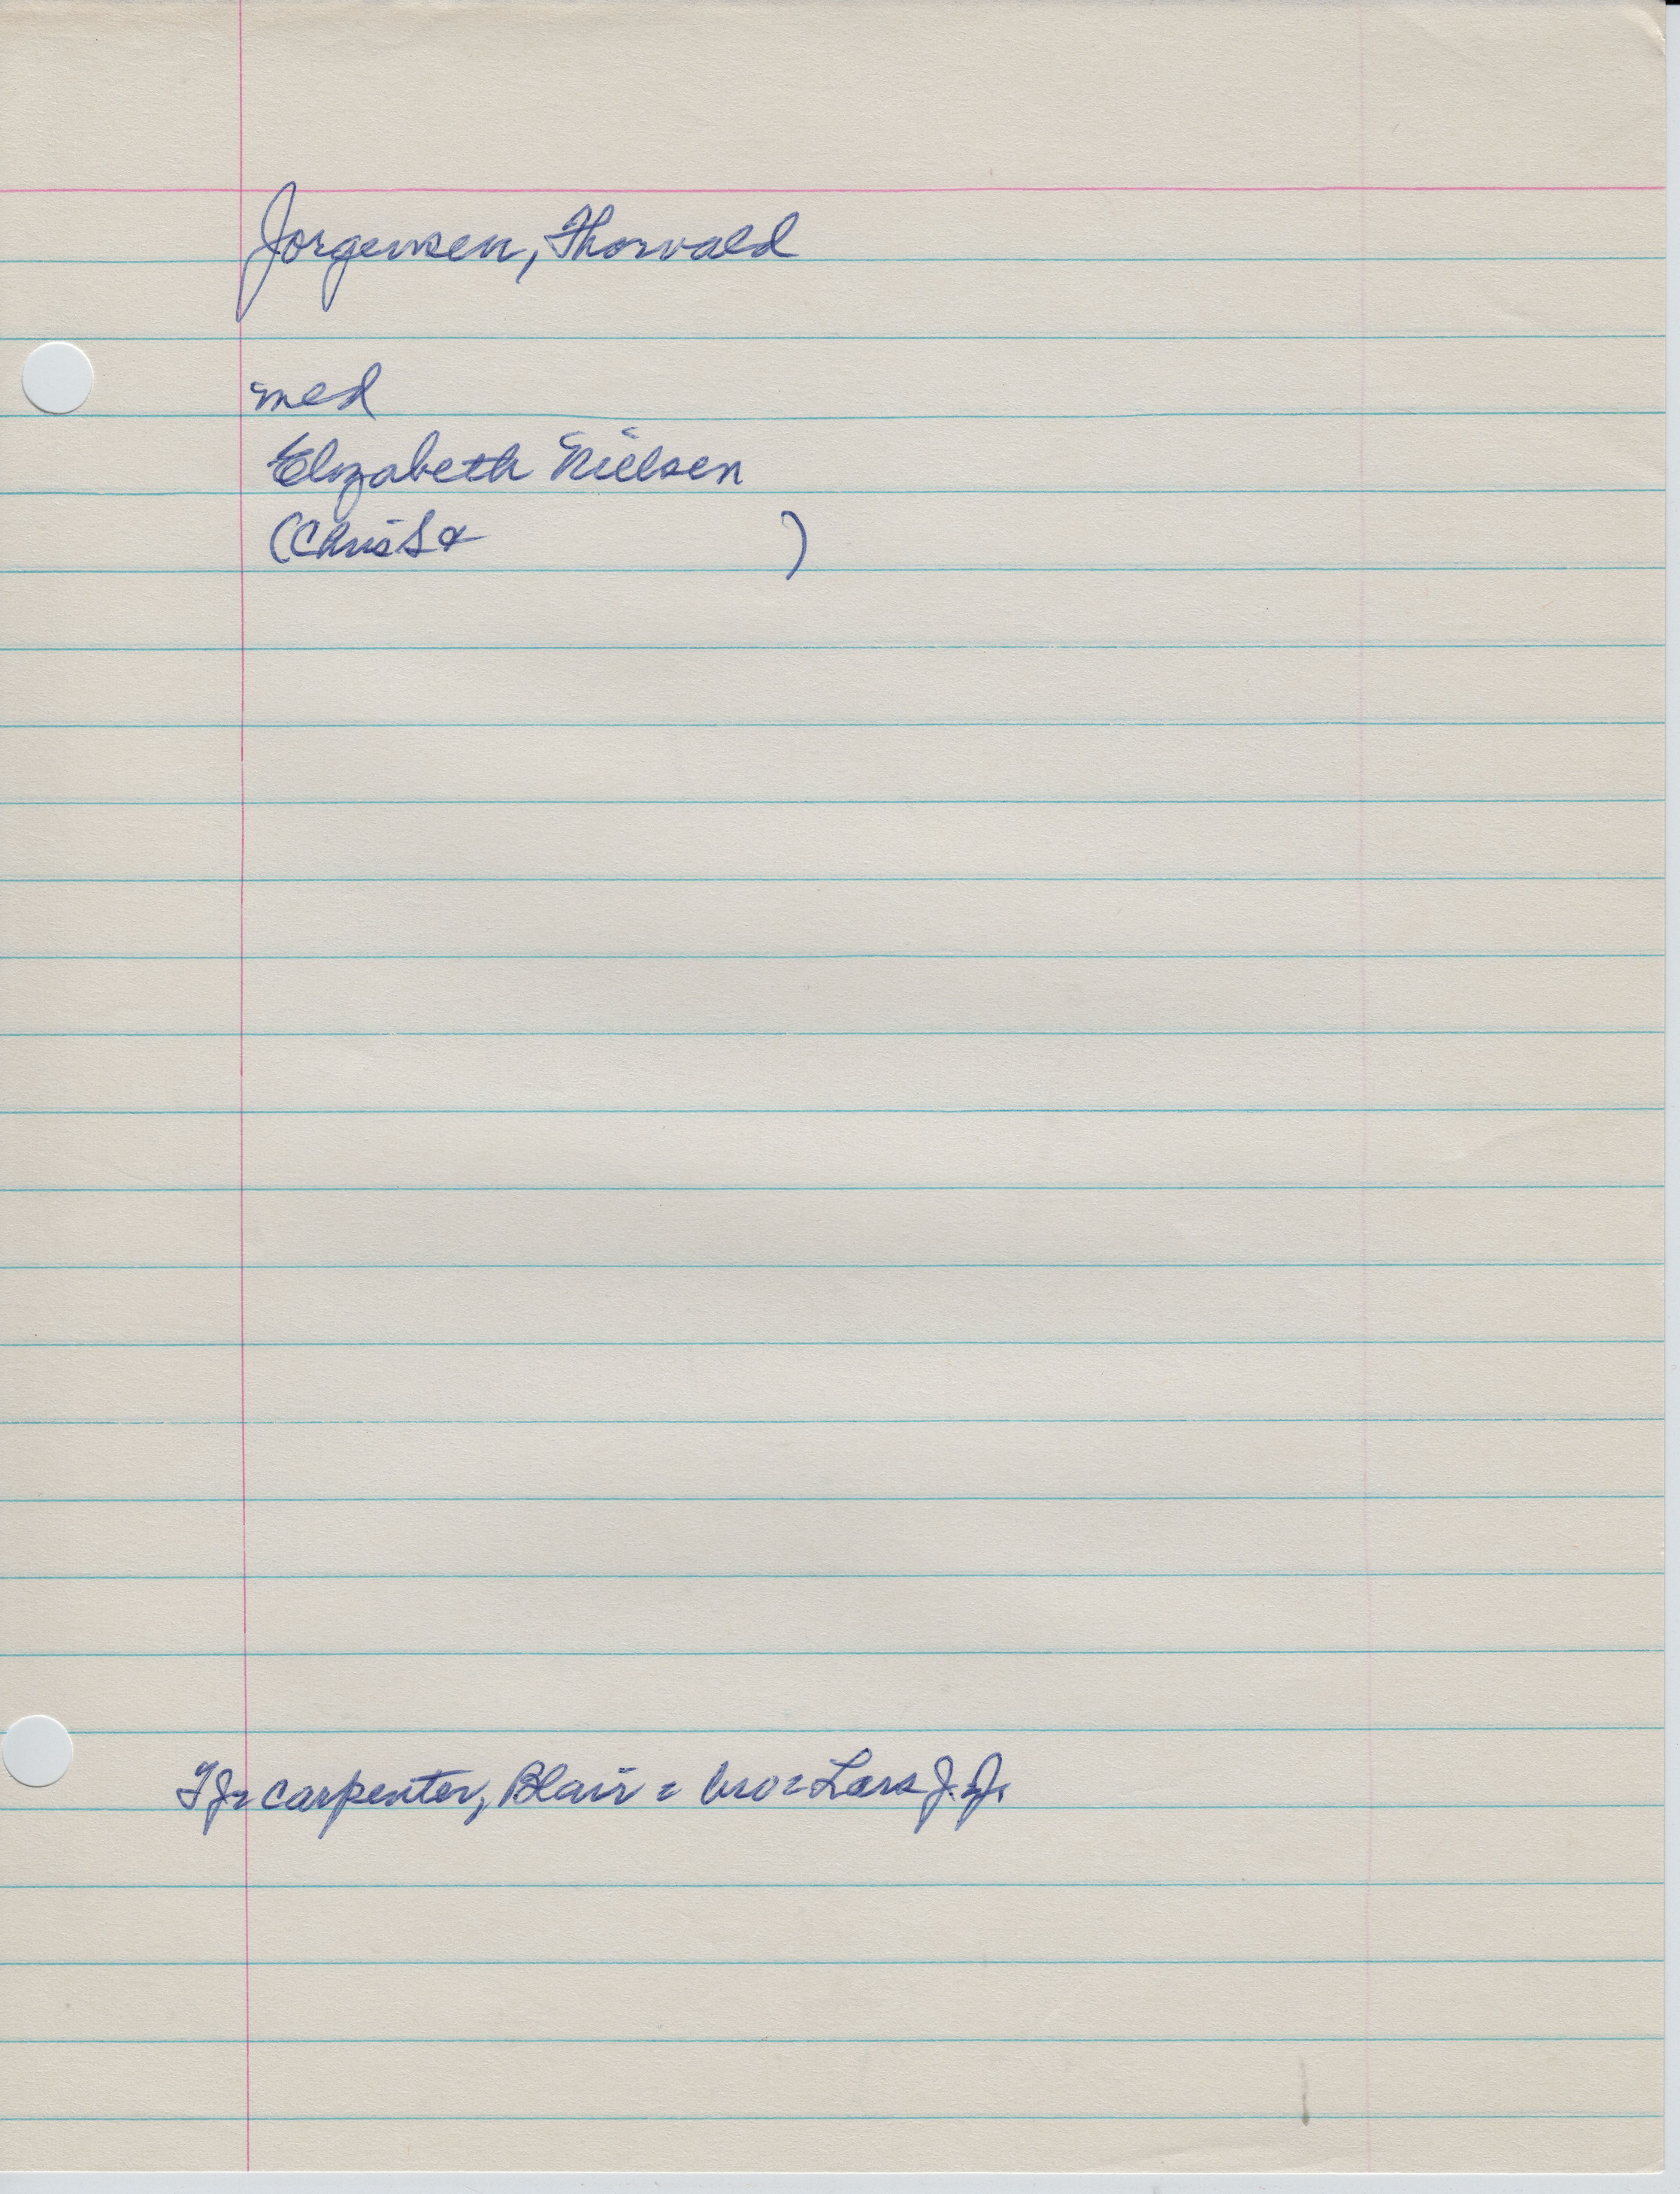 Jorgensen, Thorvald
med
Elizabeth Nielsen
(Chris &                )
TJ = carpenter, Blair = bro = Lars J. J.